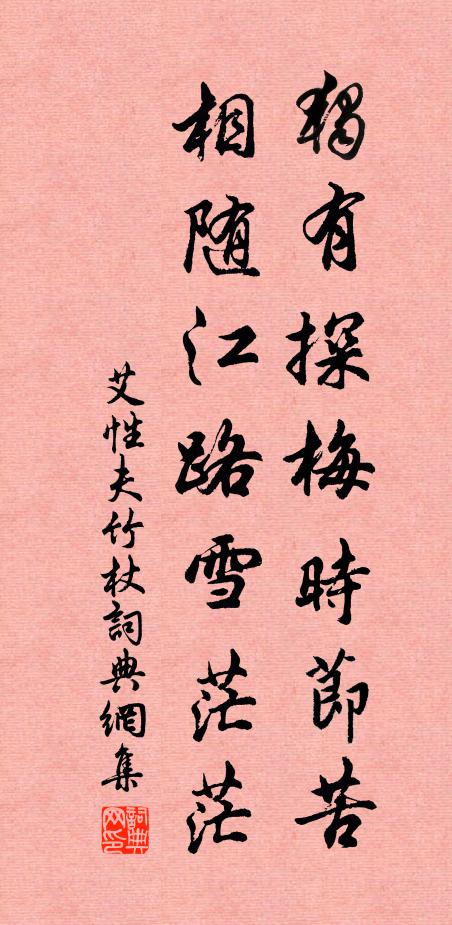 獨有探梅時節苦
相隨江路雪茫茫
艾性夫竹杖詞典網集
詞典網印